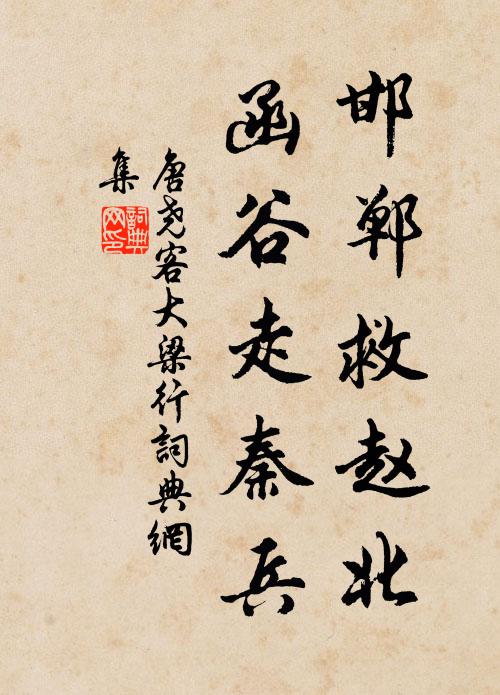 邯郸救赵北
函谷走秦兵
唐尧客大梁行詞典網
集
詞典
网印